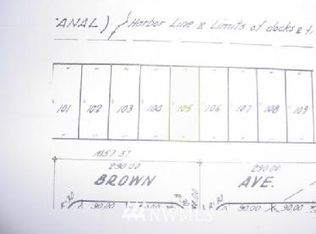 CANAL) Harbor Line & Limits of docks &
101 102 103 104 105 106 107 108 109
1057.37
290.00 290.00
BROWN AVE.
90.00 90.00 90.00
NWMLS